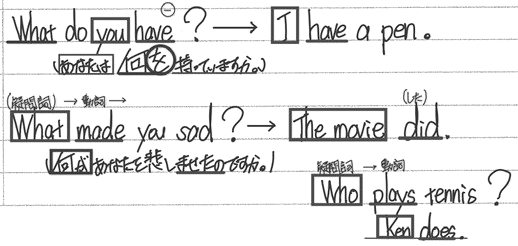 What do you have? → I have a pen.
(あなたは 何を 持っていますか。)
(疑問詞) → 動詞 → (した)
What made you sad? → The movie did.
(何があなたを悲しませたのですか。)
疑問詞 → 動詞
Who plays tennis?
Ken does.